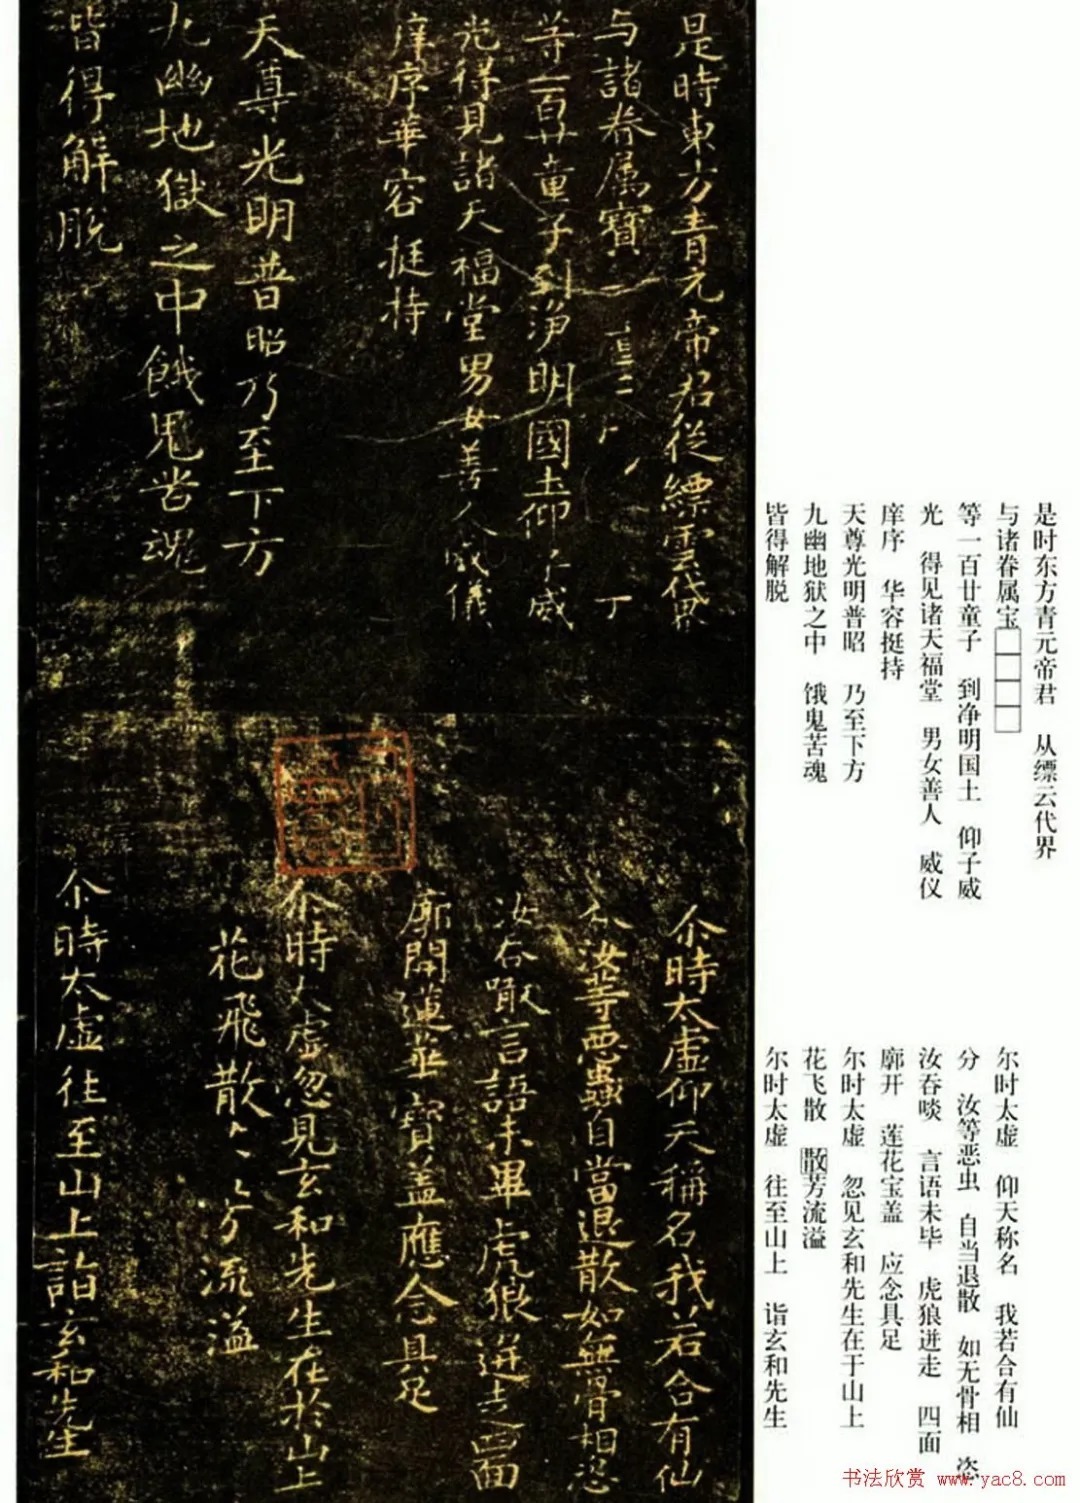 是時東方青元帝君從縹雲代界
与諸眷属寶
等一百廿童子到净明國土仰子威
光得見諸天福堂男女善人威儀
庠序華容挺持
天尊光明普昭乃至下方
九幽地獄之中餓鬼苦魂
皆得解脱
尒時太虚仰天稱名我若合有仙
分汝等惡蟲自當退散如無骨相恣
汝吞噉言語未畢虎狼迸走四面
廓開蓮華寳盖應念具足
尒時太虚忽見玄和先生在於山上
花飛散〻〻芳流溢
尒時太虚往至山上詣玄和先生
是时东方青元帝君 从缥云代界
与诸眷属宝□□□□
等一百廿童子 到净明国土 仰子威
光 得见诸天福堂 男女善人 威仪
庠序 华容挺持
天尊光明普昭 乃至下方
九幽地狱之中 饿鬼苦魂
皆得解脱
尔时太虚 仰天称名 我若合有仙
分 汝等恶虫 自当退散 如无骨相 恣
汝吞啖 言语未毕 虎狼迸走 四面
廓开 莲花宝盖 应念具足
尔时太虚 忽见玄和先生在于山上
花飞散 散芳流溢
尔时太虚 往至山上 诣玄和先生
书法欣赏 www.yac8.com